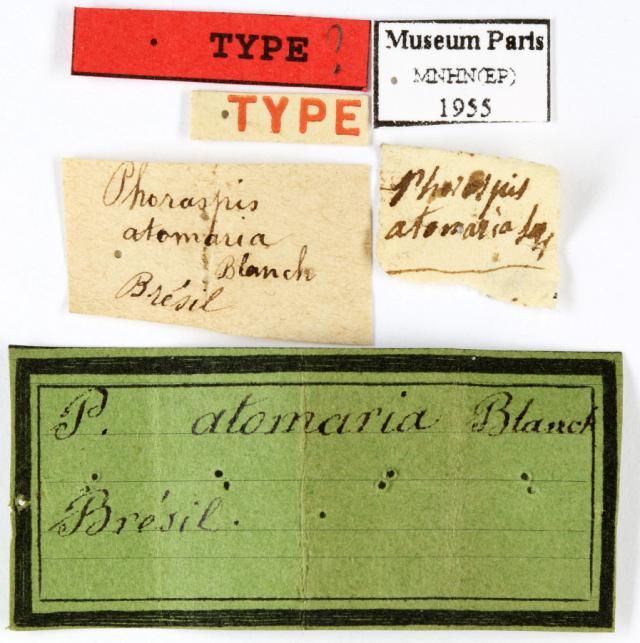 TYPE ?
Museum Paris
MNHN(EP)
1955
TYPE
Phoraspis
atomaria
Blanch
Brésil
Phoraspis
atomaria
P. atomaria Blanch
Brésil.